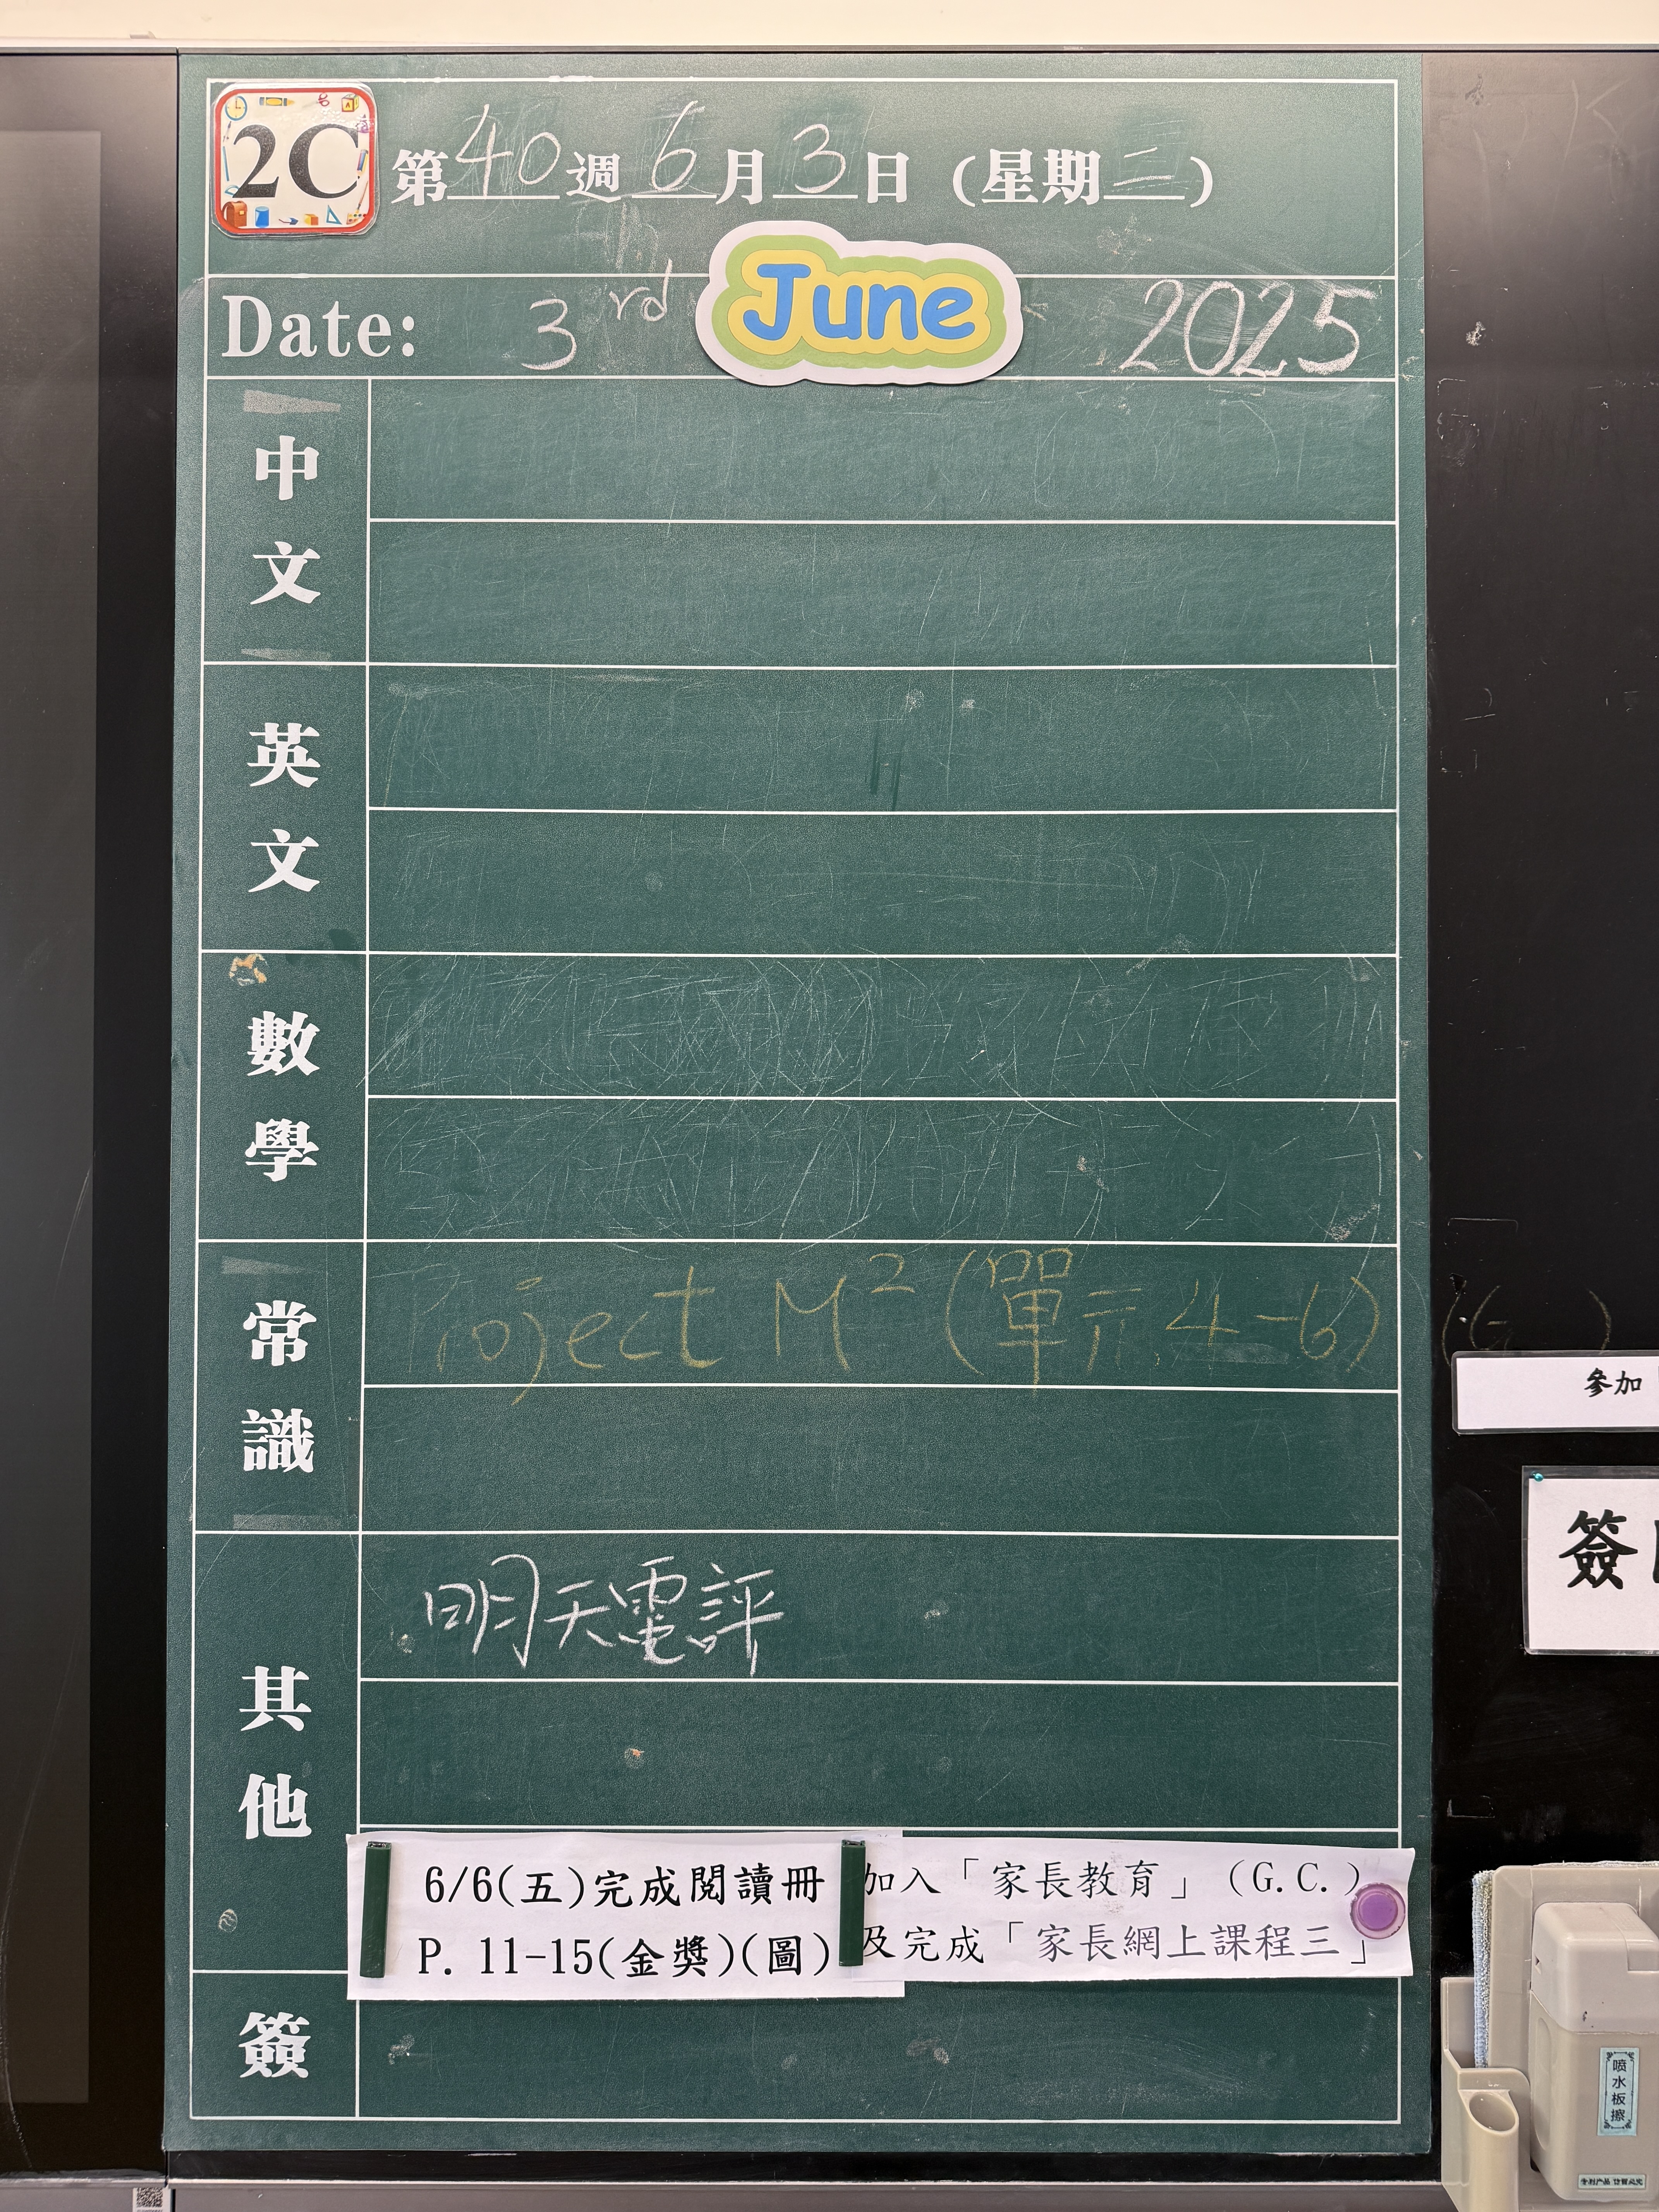 2C
第40週6月3日(星期二)
Date: 3rd June 2025
中文
英文
數學
常識
Project M²(單元4-6)
其他
明天電評
6/6(五)完成閱讀冊
P. 11-15(金獎)(圖)
加入「家長教育」(G.C.)
及完成「家長網上課程三」
簽
參加
簽
喷水板擦